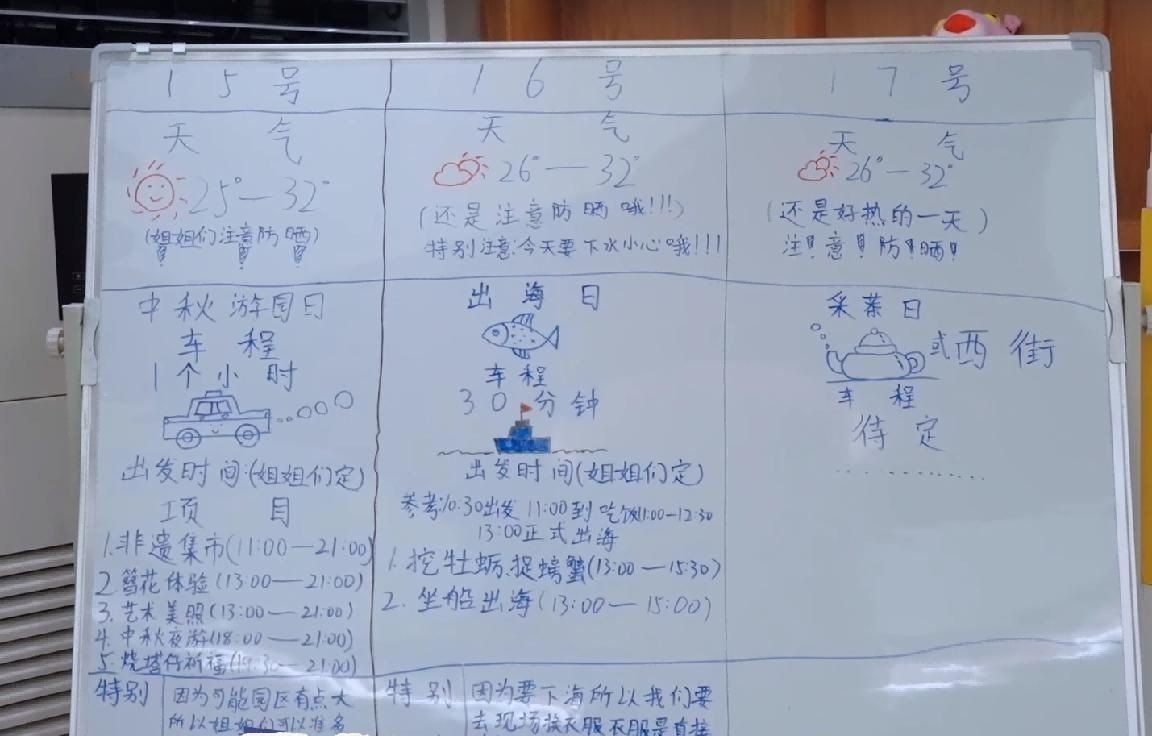 15号
天气
25°—32°
(姐姐们注意防晒)
中秋游园日
车程
1个小时
出发时间:(姐姐们定)
项目
1.非遗集市(11:00—21:00)
2.簪花体验(13:00—21:00)
3.艺术美照(13:00—21:00)
4.中秋夜游(18:00—21:00)
5.烧塔仔祈福(19:30—21:00)
特别
因为可能园区有点大
所以姐姐们可以准备
16号
天气
26°—32°
(还是注意防晒哦!!!)
特别注意:今天要下水小心哦!!!
出海日
车程
30分钟
出发时间(姐姐们定)
参考:10:30出发 11:00到 吃饭11:00-12:30
13:00正式出海
1.挖牡蛎.捉螃蟹(13:00—15:30)
2.坐船出海(13:00—15:00)
特别
因为要下海所以我们要
去现场换衣服衣服是直接
17号
天气
26°—32°
(还是好热的一天)
注!意!防!晒!
采茶日
或西街
车程
待定